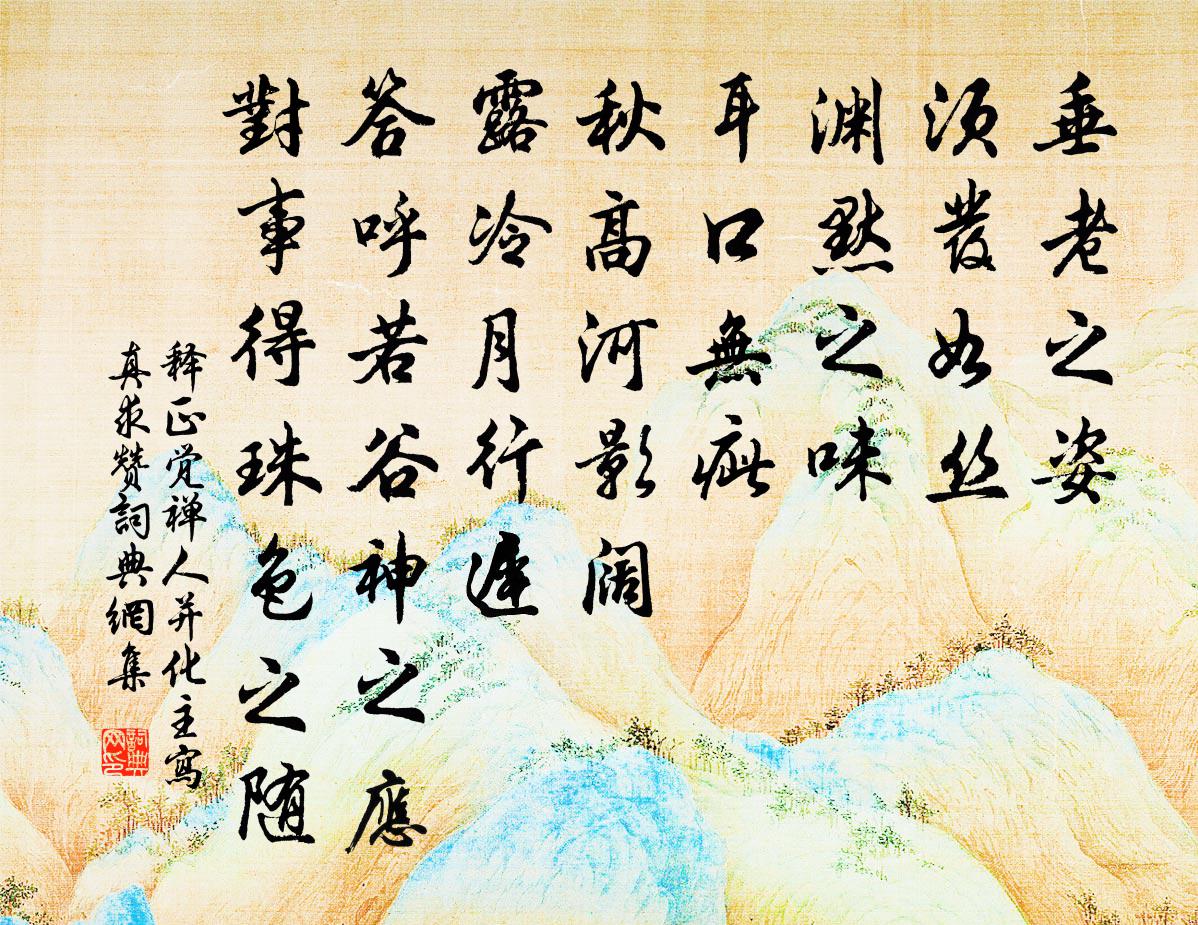 垂老之姿
须發如丝
渊默之味
耳口無疵
秋高河影阔
露冷月行遲
答呼若谷神之應
對事得珠色之随
释正觉禅人并化主寫
真求赞詞典網集
詞典网印